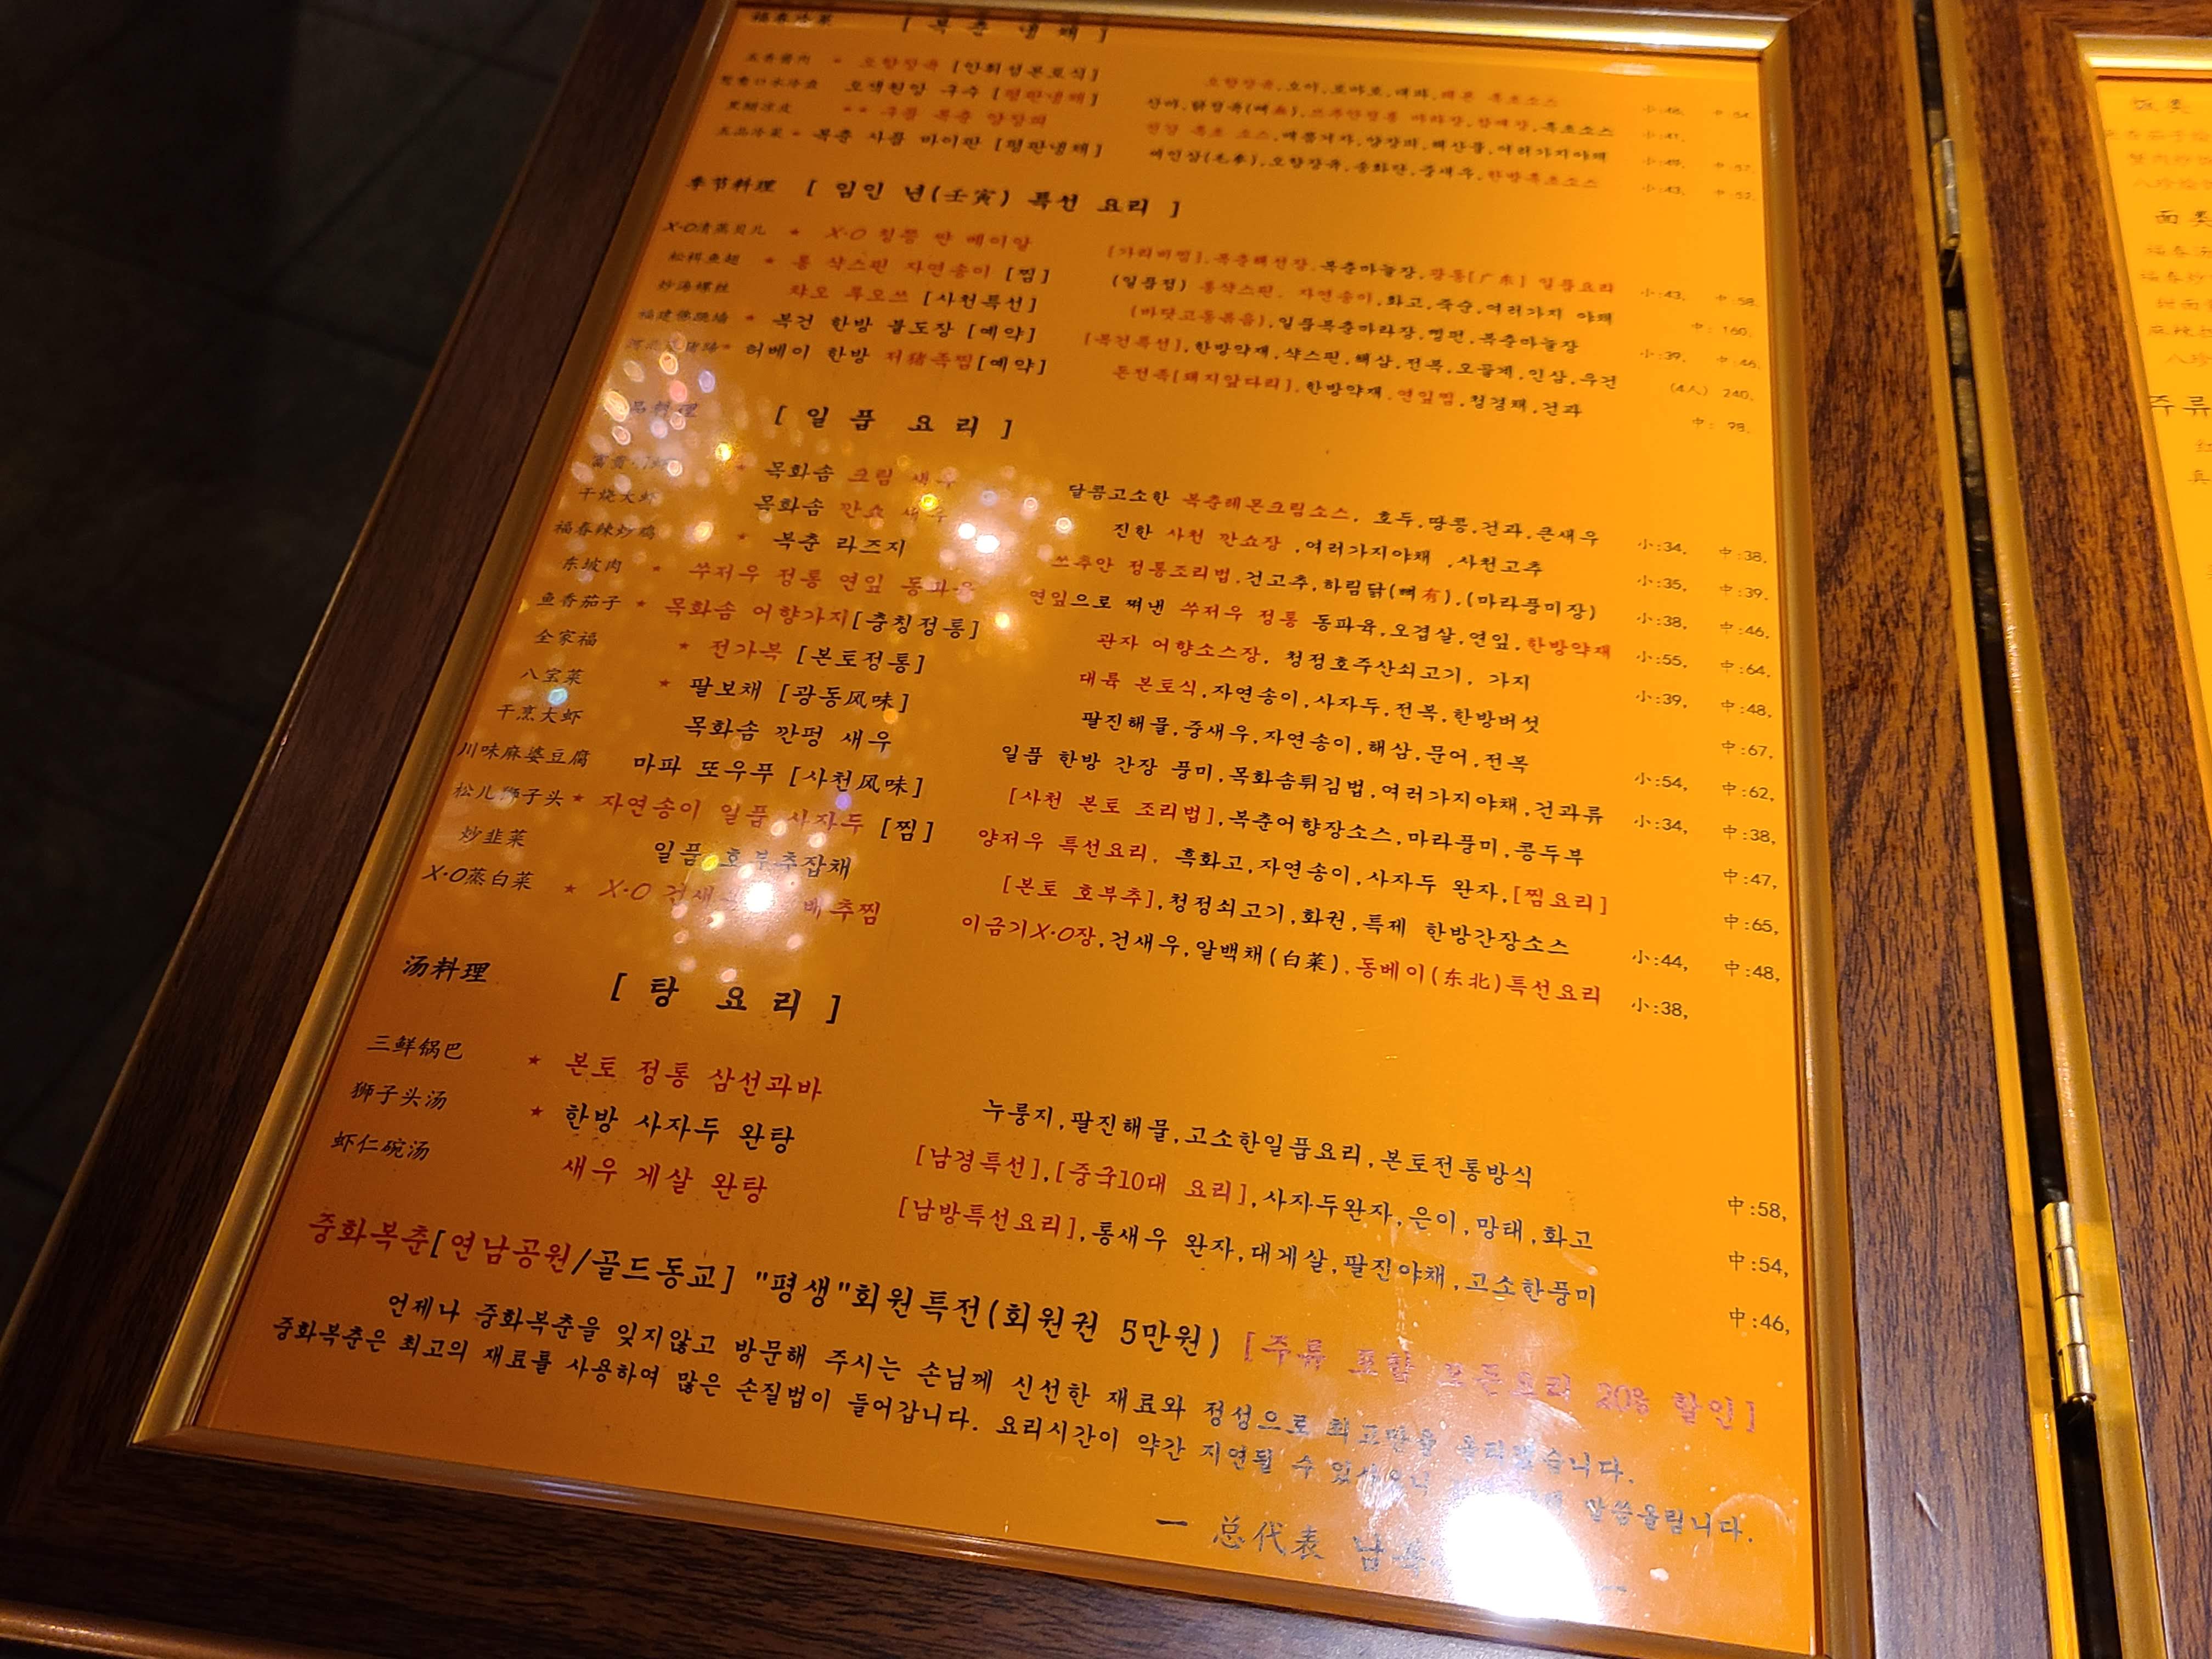 福春冷菜 [ 복춘 냉채 ]
五香酱肉 * 오향장육 [안휘성본토식] 오향장육,오이,토마토,대파,레몬 특초소스 小:46, 中:54,
오색원앙 구수 [평판냉채] 小:41,
** 구품 복춘 양장피 小:49, 中:57,
五品冷菜 * 복춘 사품 마이판 [평판냉채] 여인삼(毛拳),오향장육,송화단,중새우,한방특초소스 小:43, 中:52,
季节料理 [ 임인 년(壬寅) 특선 요리 ]
X·O清蒸贝儿 * X·O 칭쯩 싼 베이알 [가리비찜],복춘해선장,복춘마늘장,광동[广东] 일품요리 小:43, 中:58,
松栮鱼翅 * 통 샥스핀 자연송이 [찜] (일품찜) 통샥스핀, 자연송이,화고,죽순,여러가지 야채 中: 160,
炒汤螺丝 챠오 루오쓰 [사천특선] (바닷고동볶음),일품복춘마라장,삥편,복춘마늘장 小:39, 中:46,
福建佛跳墙 * 복건 한방 불도장 [예약] [복건특선],한방약재,샥스핀,해삼,전복,오골계,인삼,우건 (4人) 240,
* 허베이 한방 저猪족찜[예약] 돈전족[돼지앞다리],한방약재,연잎찜,청경채,건과 中: 78,
品料理 [ 일 품 요 리 ]
* 목화솜 크림 새우 달콤고소한 복춘레몬크림소스, 호두,땅콩,건과,큰새우 小:34, 中:38,
干烧大虾 목화솜 깐쇼 새우 진한 사천 깐쇼장 ,여러가지야채 ,사천고추 小:35, 中:39,
福春辣炒鸡 * 복춘 라즈지 쓰추안 정통조리법,건고추,하림닭(뼈有),(마라풍미장) 小:38, 中:46,
东坡肉 * 쑤저우 정통 연잎 동파육 연잎으로 쪄낸 쑤저우 정통 동파육,오겹살,연잎,한방약재 小:55, 中:64,
鱼香茄子 * 목화솜 어향가지[충칭정통] 관자 어향소스장, 청정호주산쇠고기, 가지 小:39, 中:48,
全家福 * 전가복 [본토정통] 대륙 본토식,자연송이,사자두,전복,한방버섯 中:67,
八宝菜 * 팔보채 [광동风味] 팔진해물,중새우,자연송이,해삼,문어,전복 小:54, 中:62,
干烹大虾 목화솜 깐펑 새우 일품 한방 간장 풍미,목화솜튀김법,여러가지야채,건과류 小:34, 中:38,
川味麻婆豆腐 마파 또우푸 [사천风味] [사천 본토 조리법],복춘어향장소스,마라풍미,콩두부 中:47,
松儿狮子头 * 자연송이 일품 사자두 [찜] 양저우 특선요리, 흑화고,자연송이,사자두 완자,[찜요리] 中:65,
炒韭菜 일품 호부추잡채 [본토 호부추],청정쇠고기,화권,특제 한방간장소스 小:44, 中:48,
X·O蒸白菜 * X·O 건새우 배추찜 이금기X·O장,건새우,알백채(白菜),동베이(东北)특선요리 小:38,
汤料理 [ 탕 요 리 ]
三鲜锅巴 * 본토 정통 삼선과바 누룽지,팔진해물,고소한일품요리,본토전통방식 中:58,
狮子头汤 * 한방 사자두 완탕 [남경특선],[중국10대 요리],사자두완자,은이,망태,화고 中:54,
虾仁碗汤 새우 게살 완탕 [남방특선요리],통새우 완자,대게살,팔진야채,고소한풍미 中:46,
중화복춘[연남공원/골드동교] "평생"회원특전(회원권 5만원) [주류 포함 모든요리 20% 할인]
언제나 중화복춘을 잊지않고 방문해 주시는 손님께 신선한 재료와 정성으로 최고만을 올리겠습니다.
중화복춘은 최고의 재료를 사용하여 많은 손질법이 들어갑니다. 요리시간이 약간 지연될 수 있사오니 말씀올립니다.
一 总代表 남
面类
주류